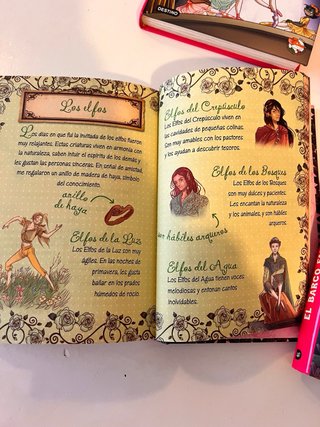 DESTINO
Los elfos
Los días en que fui la invitada de los elfos fueron
muy relajantes. Estas criaturas viven en armonía con
la naturaleza, saben intuir el espíritu de los demás y
les gustan las personas sinceras. En señal de amistad,
me regalaron un anillo de madera de haya, símbolo
del conocimiento.
anillo
de haya
Elfos de la Luz
Los Elfos de la Luz son muy
ágiles. En las noches de
primavera, les gusta
bailar en los prados
húmedos de rocío.
Elfos del Crepúsculo
Los Elfos del Crepúsculo viven en
las cavidades de pequeñas colinas.
Son muy amables con los pastores
y los ayudan a descubrir tesoros.
Elfos de los Bosques
Los Elfos de los Bosques
son muy dulces y pacientes.
Les encantan la naturaleza
y los animales, y son hábiles
arqueros.
son hábiles arqueros
Elfos del Agua
Los Elfos del Agua tienen voces
melodiosas y entonan cantos
inolvidables.
EL BARCO